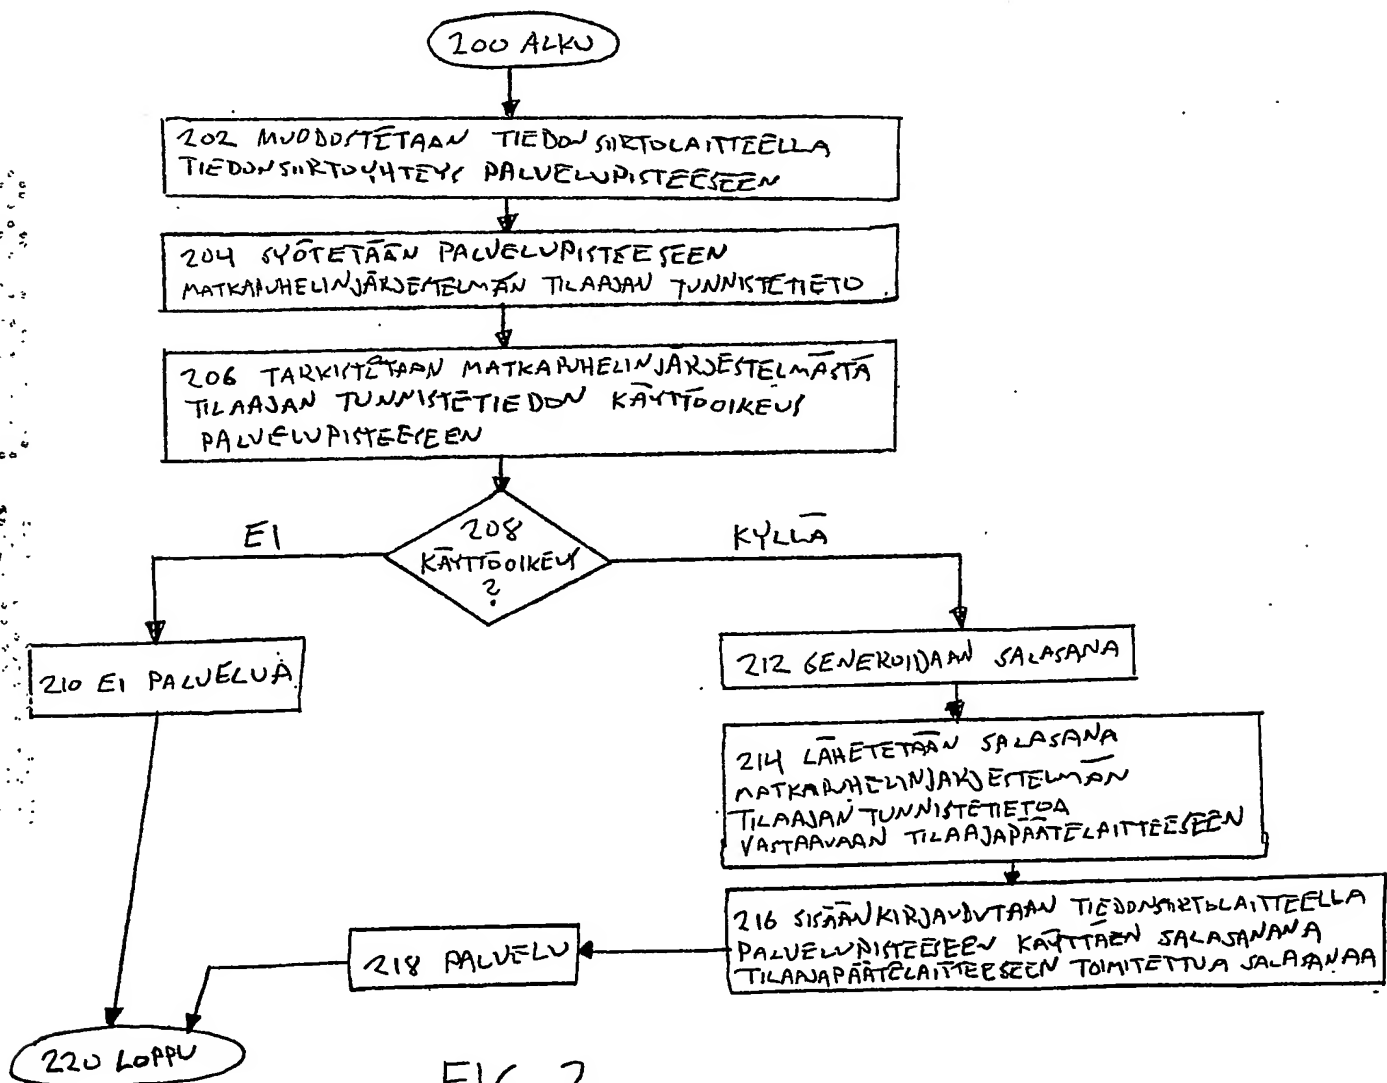 200 ALKU
202 MUODOSTETAAN TIEDONSIIRTOLAITTEELLA
TIEDONSIIRTOYHTEYS PALVELUPISTEESEEN
204 SYÖTETÄÄN PALVELUPISTEESEEN
MATKAPUHELINJÄRJESTELMÄN TILAAJAN TUNNISTETIETO
206 TARKISTETAAN MATKAPUHELINJÄRJESTELMÄSTÄ
TILAAJAN TUNNISTETIEDON KÄYTTÖOIKEUS
PALVELUPISTEESEEN
208
KÄYTTÖOIKEUS
?
EI
KYLLÄ
210 EI PALVELUA
212 GENEROIDAAN SALASANA
214 LÄHETETÄÄN SALASANA
MATKAPUHELINJÄRJESTELMÄN
TILAAJAN TUNNISTETIETOA
VASTAAVAAN TILAAJAPÄÄTELAITTEESEEN
216 SISÄÄNKIRJAUDUTAAN TIEDONSIIRTOLAITTEELLA
PALVELUPISTEESEEN KÄYTTÄEN SALASANANA
TILAAJAPÄÄTELAITTEESEEN TOIMITETTUA SALASANAA
218 PALVELU
220 LOPPU
FIG 2